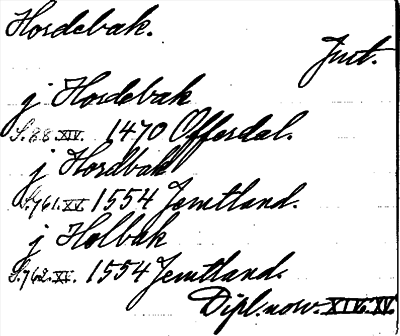 Hordebak.
Jmt.
j Hordebak
S.88.XIV. 1470 Offerdal.
j Hordbak
S.761.XV. 1554 Jemtland.
j Holbak
S.762.XV. 1554 Jemtland.
Dipl. norv. XIV. XV.